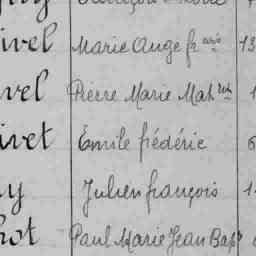 ivel Marie Ange fr çois 13
vel Pierre Marie Math
ivet Émile frédéric 6
y Julien françois 1
hot Paul Marie Jean Bap